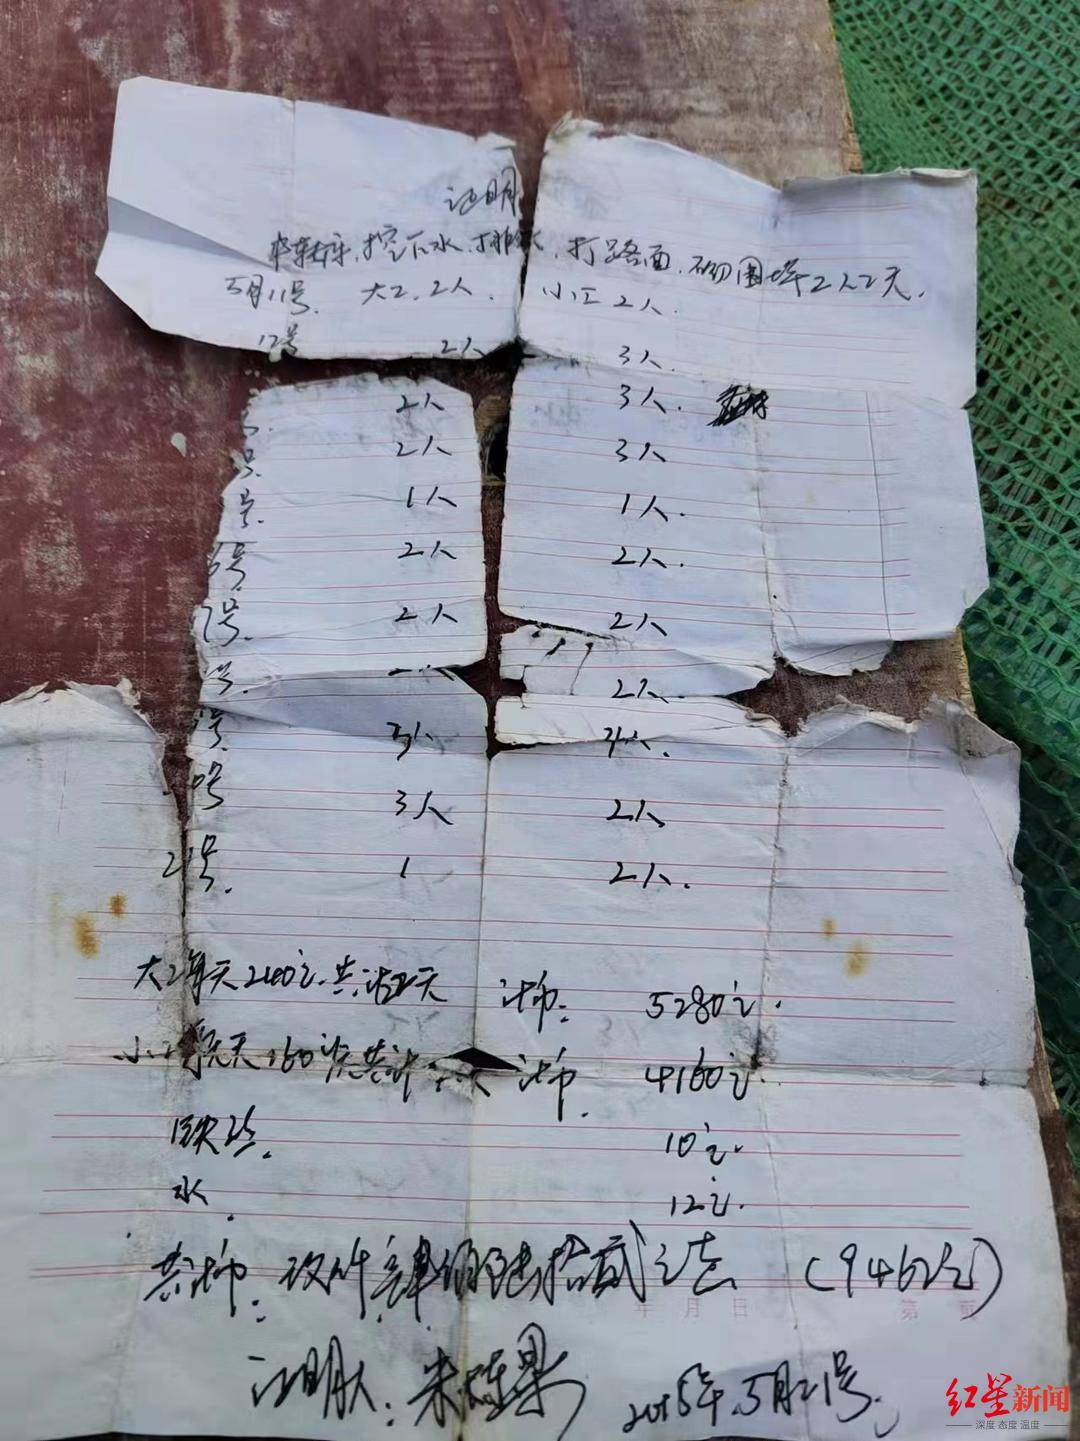 证明
挖下水,排水,打路面,砌围墙2人2天.
5月11号. 大工.2人. 小工2人.
12号 2人 3人.
2人 3人.
号. 2人 3人
号. 1人 1人.
6号. 2人 2人.
7号. 2人 2人
号. 2人.
号. 3人 4人.
号 3人 2人
21号. 1 2人.
大工每天240元.共计 天 计币: 5280元.
小工每天160元共计 天 计币. 4160元.
铁丝. 10元.
水. 12元.
共计币: 玖仟肆佰陆拾贰元 (9462元)
年 月 日 第 页
证明人: 朱 果 2015年.5月21号.
红星新闻
深度 态度 温度